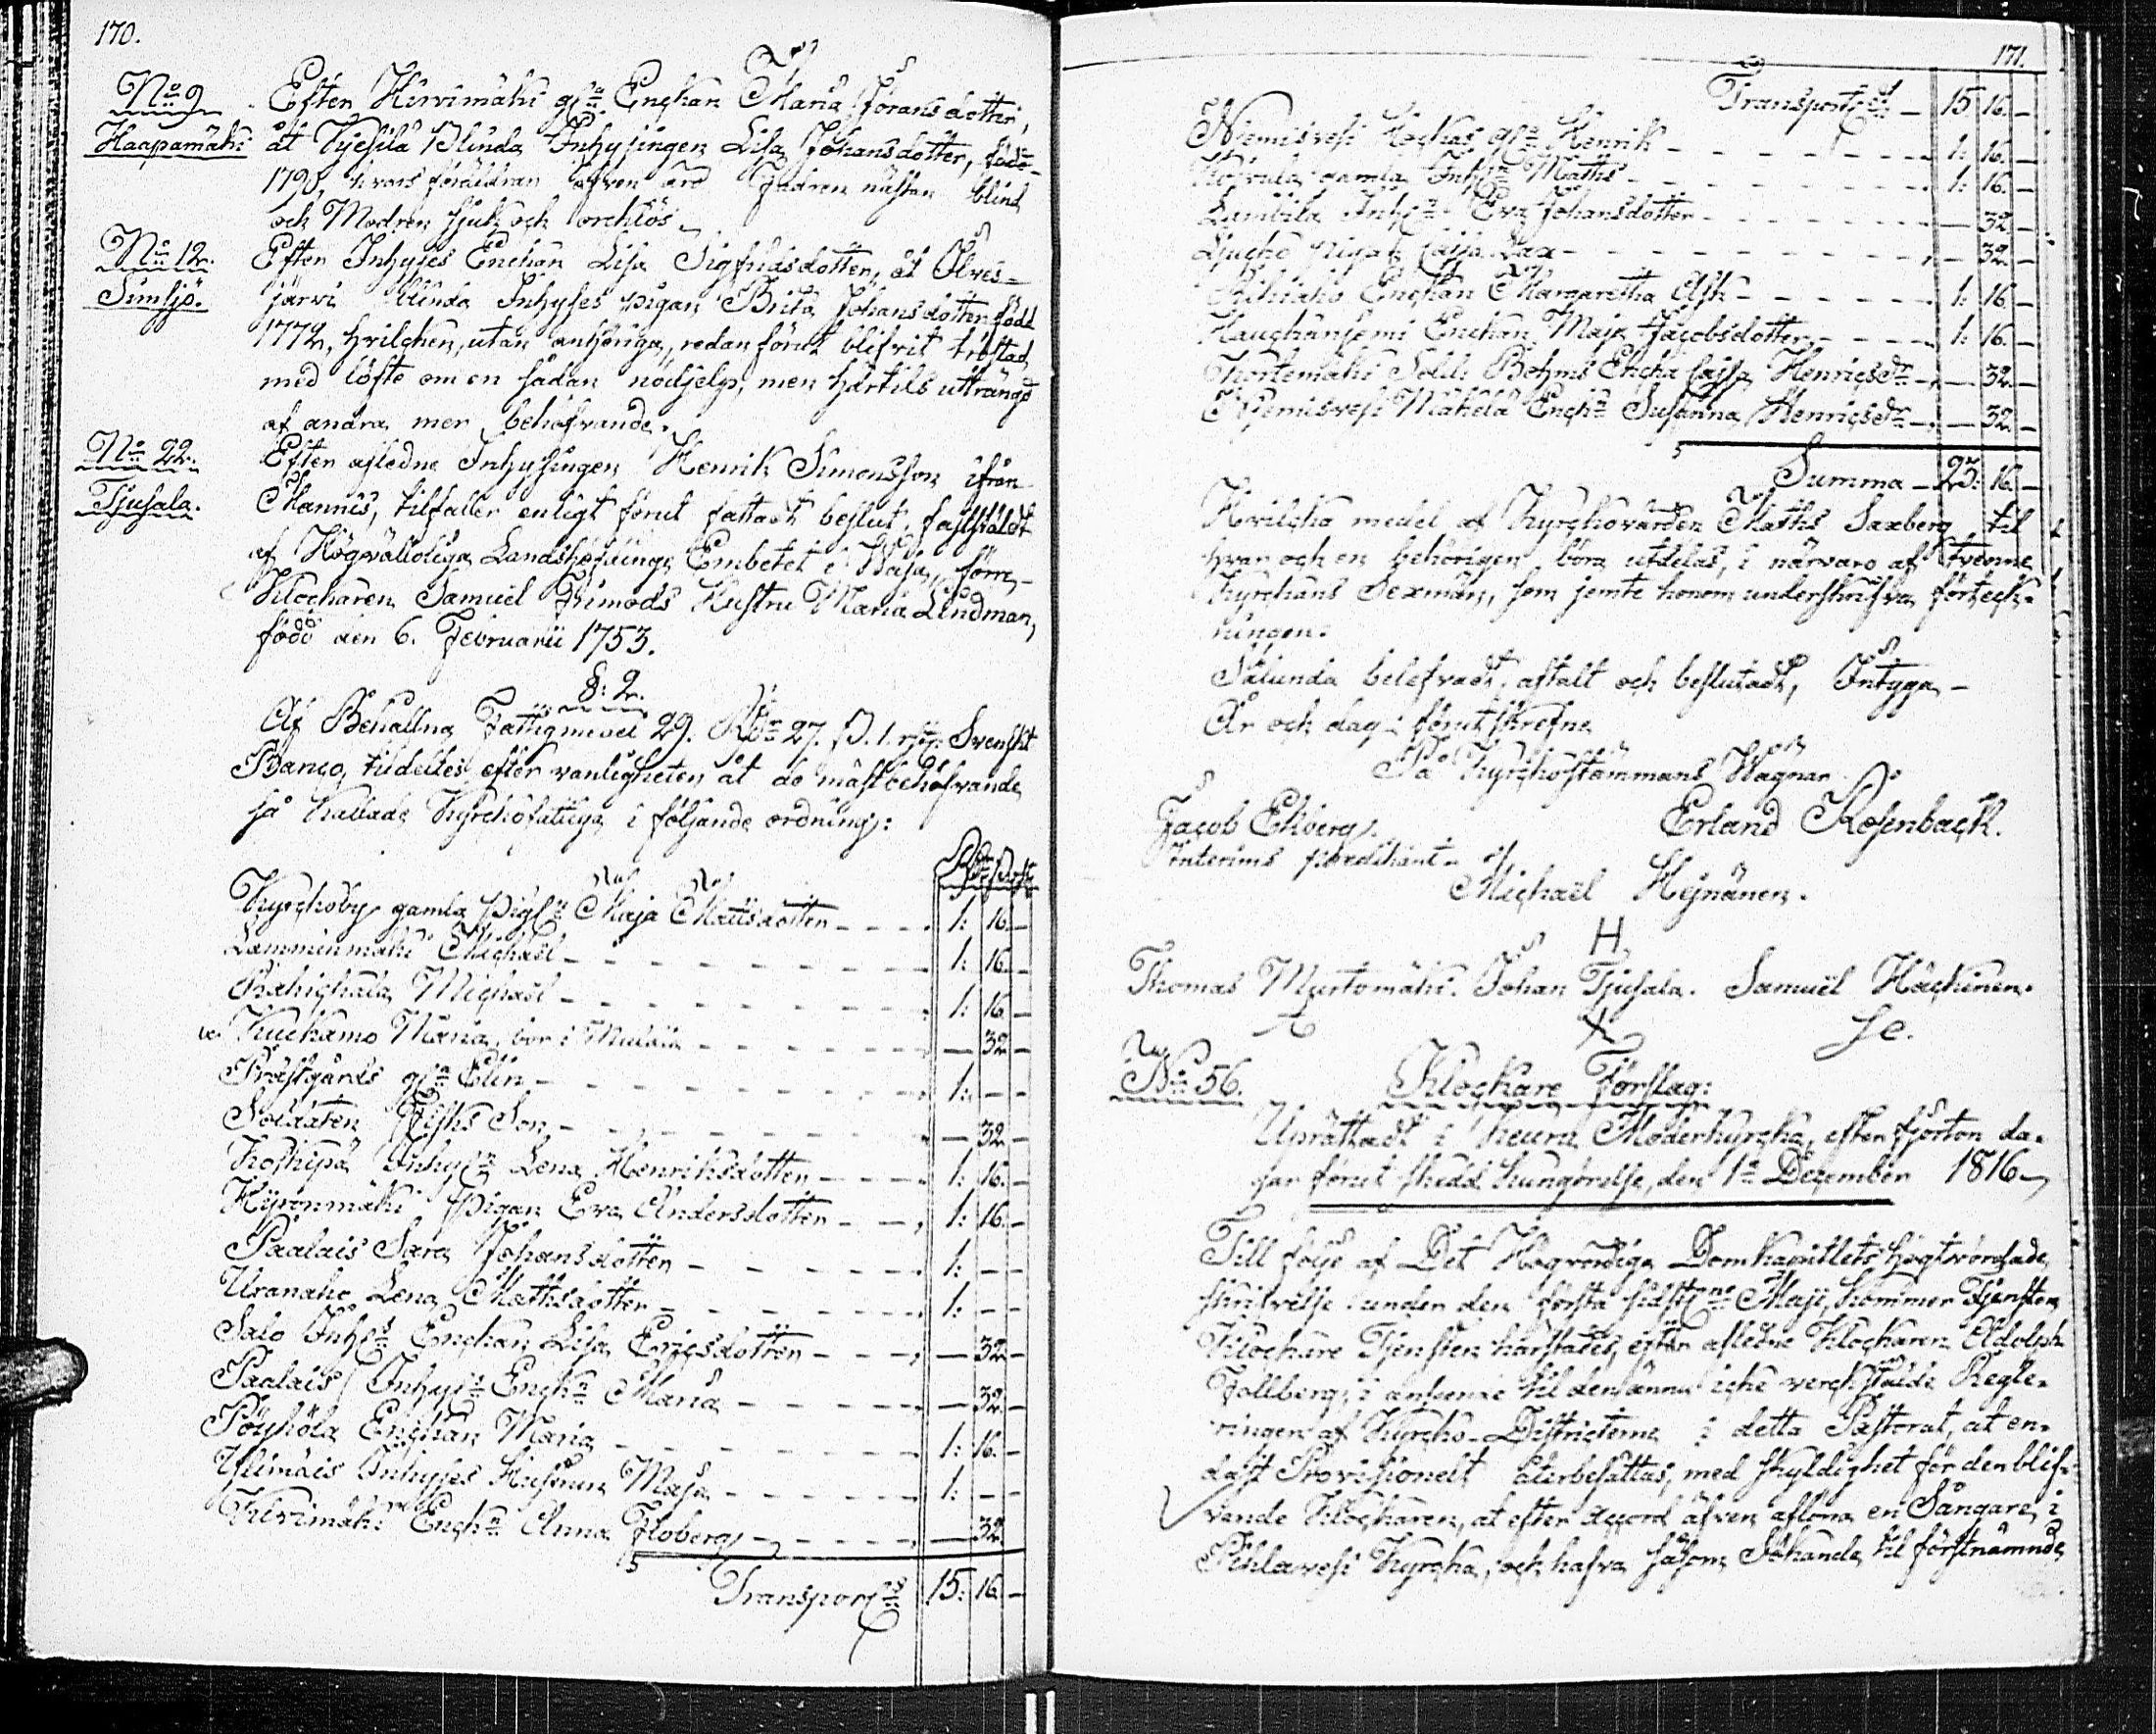 170.
No 9 Efter Hirvimäki gla Enckan Maria Joransdotter,
Haapamäki åt Vjesilä Blinda Inhysingen Lisa Johansdotter, född
1798, hvars föräldrar äfven äro Fadren nästan blind
och Modren sjuk och orchlös.
No 12. Efter Inhyses Enckan Lisa Sigfridsdotter, åt
Simsjö. järvi blinda Inhyses pigan Brita Johansdotter född
1772, hvilcken, utan anhöriga, redan förut blifvit tröstad
med löfte om en sådan nödhjelp, men härtils utträngd
af andra mer behöfvande.
No 22. Efter aflidne Inhysingen Henrik Simonsson ifrån
Tjusala. Mannis, tilfaller enligt förut fattadt beslut, faststäldt
af Högvälloflige Landshöfdinge Embetet i Wasa, förre
Klockaren Samuel Frimods Hustru Maria Lindman,
född den 6. Februarii 1753.
§: 2.
Af Behållna Fattigmedel 29. Rdr 27. s. 1. Svenskt
Banco, tildeltes efter vanligheten åt de mäst behöfvande
så kallade Kyrckofattiga i följande ordning:
Kyrckoby gamla Maja Mattsdotter - - - 1: 16. -
Lamminmäki Michaël - - - 1: 16. -
Michaël - - - 1: 16. -
Kuckamo Maria, bor i - - - - 32 -
Prästgårds gla Elin - - - 1: - -
Soldaten Fisks Son - - - - 32 -
Koskipä Lena Henriksdotter - - - 1: 16. -
Kyrönmäki Pigan Eva Andersdotter - - - 1: 16. -
Paalais Sara Johansdotter - - - 1: - -
Uranaho Lena Mattsdotter - - - 1: - -
Salo Inhs Enckan Lisa Ericsdotter - - - - 32 -
Paalais Inhys Enckn Maria - - - - 32 -
Pöyhölä Enckan Maria - - - 1: 16. -
Ylimäis Inhyses Hustrun Maja - - - 1: - -
Hirvimäki Enckn Anna Floberg - - - - 32
Transport 15: 16. -
171.
Transport - 15 16. -
Niemisvesi gla Henrik - - - 1: 16. -
gamla Inhs Matts - - - 1: 16. -
Inhs Eva Johansdotter - - - - 32 -
pigan Caisa Lax - - - - 32 -
Riihiaho Enckan Margaretha Ask - - - 1: 16 -
Enckan Maja Jacobsdotter - - - 1: 16. -
Sold: Bohms Encka Cajsa Henricsdr - - - 32 -
Niemisvesi Enckn Susanna Henricsdr - - - 32 -
Summa - 23: 16. -
Hvilcka medel af Kyrckovärden Matts Saxberg til
hvar och en behörigen böra utdelas, i närvaro af tvenne
Kyrckans Sexmän, som jemte honom underskrifva förteck-
ningen.
Sålunda belefvadt, aftalt och beslutadt, Intyga -
År och dag förutskrefne
På Kyrckostämmans Wägnar
Jacob Ekberg. Erland Rosenback.
Interims predikant
Michaël Hejnänen.
H
Thomas Murtomäki. Johan Tjusala. Samuël Häckinen.
No 56. Klockare Förslag:
Uprättadt i Keuru Moderkyrcka, efter fjorton da-
gar förut skedd kungörelse, den 1a December 1816
Till följe af Det Högvördige Domkapitlets högtvördade
skrifvelse under den första sistl. Maji, kommer Tjensten
Klockare Tjensten härstädes, efter aflidne Klockaren Adolph
Follberg, i anseende til den ännu icke verckstälde Regle-
ringen af Kyrcko-Districterne i detta Pastorat, at en-
dast Provisionelt återbesättas, med skyldighet för den blif-
vande Klockaren, at efter accord äfven aflöna en Sångare i
Pihlavesi Kyrcka, och hafva såsom Sökande til förstnämnde